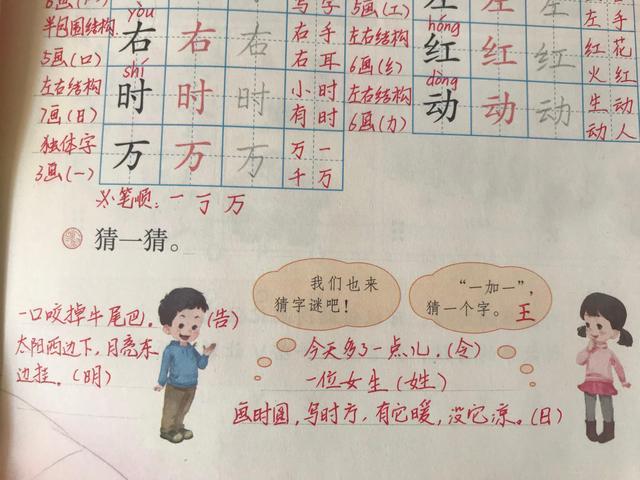 yòu
半包围结构
5画(口)
右 右 右
右手
右耳
shí
左右结构
7画(日)
时 时 时
小时
有时
独体字
3画(一)
万 万 万
万一
千万
写字
5画(工)
左手
hóng
左右结构
6画(纟)
红 红 红
红花
火红
dòng
左右结构
6画(力)
动 动 动
生动
动人
笔顺：一 丁 万
猜一猜。
我们也来
猜字谜吧！
“一加一”，
猜一个字。王
一口咬掉牛尾巴。(告)
太阳西边下，月亮东
边挂。(明)
今天多了一点儿。(令)
一位女生(姓)
画时圆，写时方，有它暖，没它凉。(日)